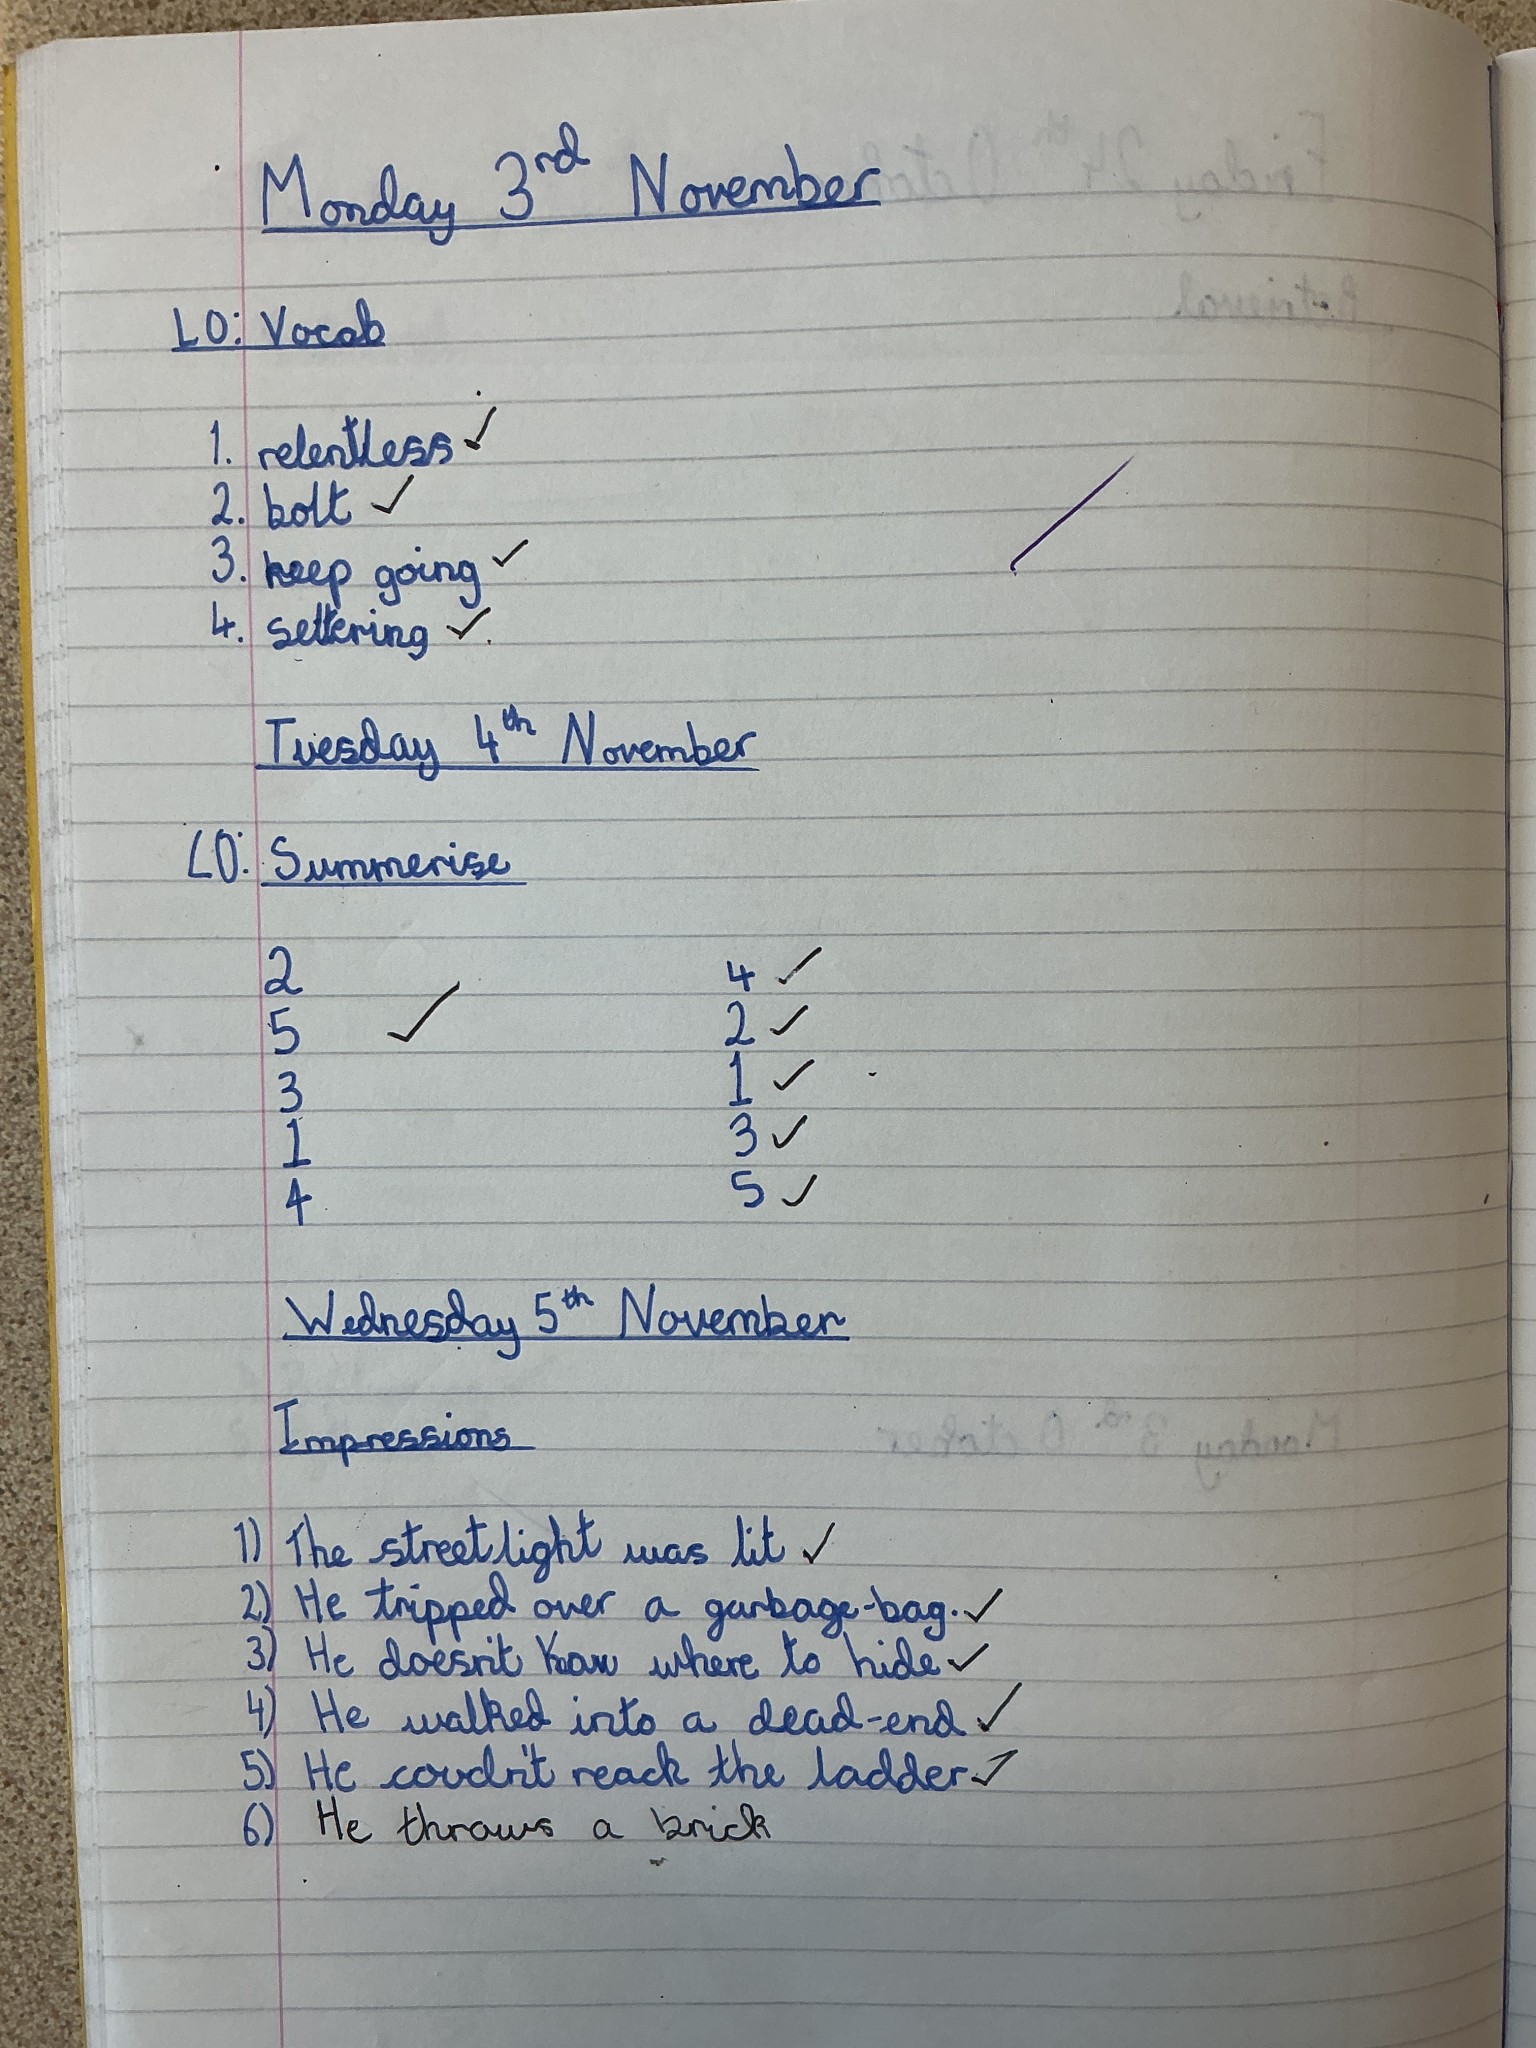 Monday 3rd November
LO: Vocab
1. relentless ✓
2. bolt ✓
3. keep going ✓
4. settering ✓
Tuesday 4th November
LO: Summerise
2 4 ✓
5 ✓ 2 ✓
3 1 ✓
1 3 ✓
4 5 ✓
Wednesday 5th November
Impressions
1) The streetlight was lit ✓
2) He tripped over a garbage-bag. ✓
3) He doesn't know where to hide ✓
4) He walked into a dead-end ✓
5) He coudn't reach the ladder ✓
6) He throws a brick